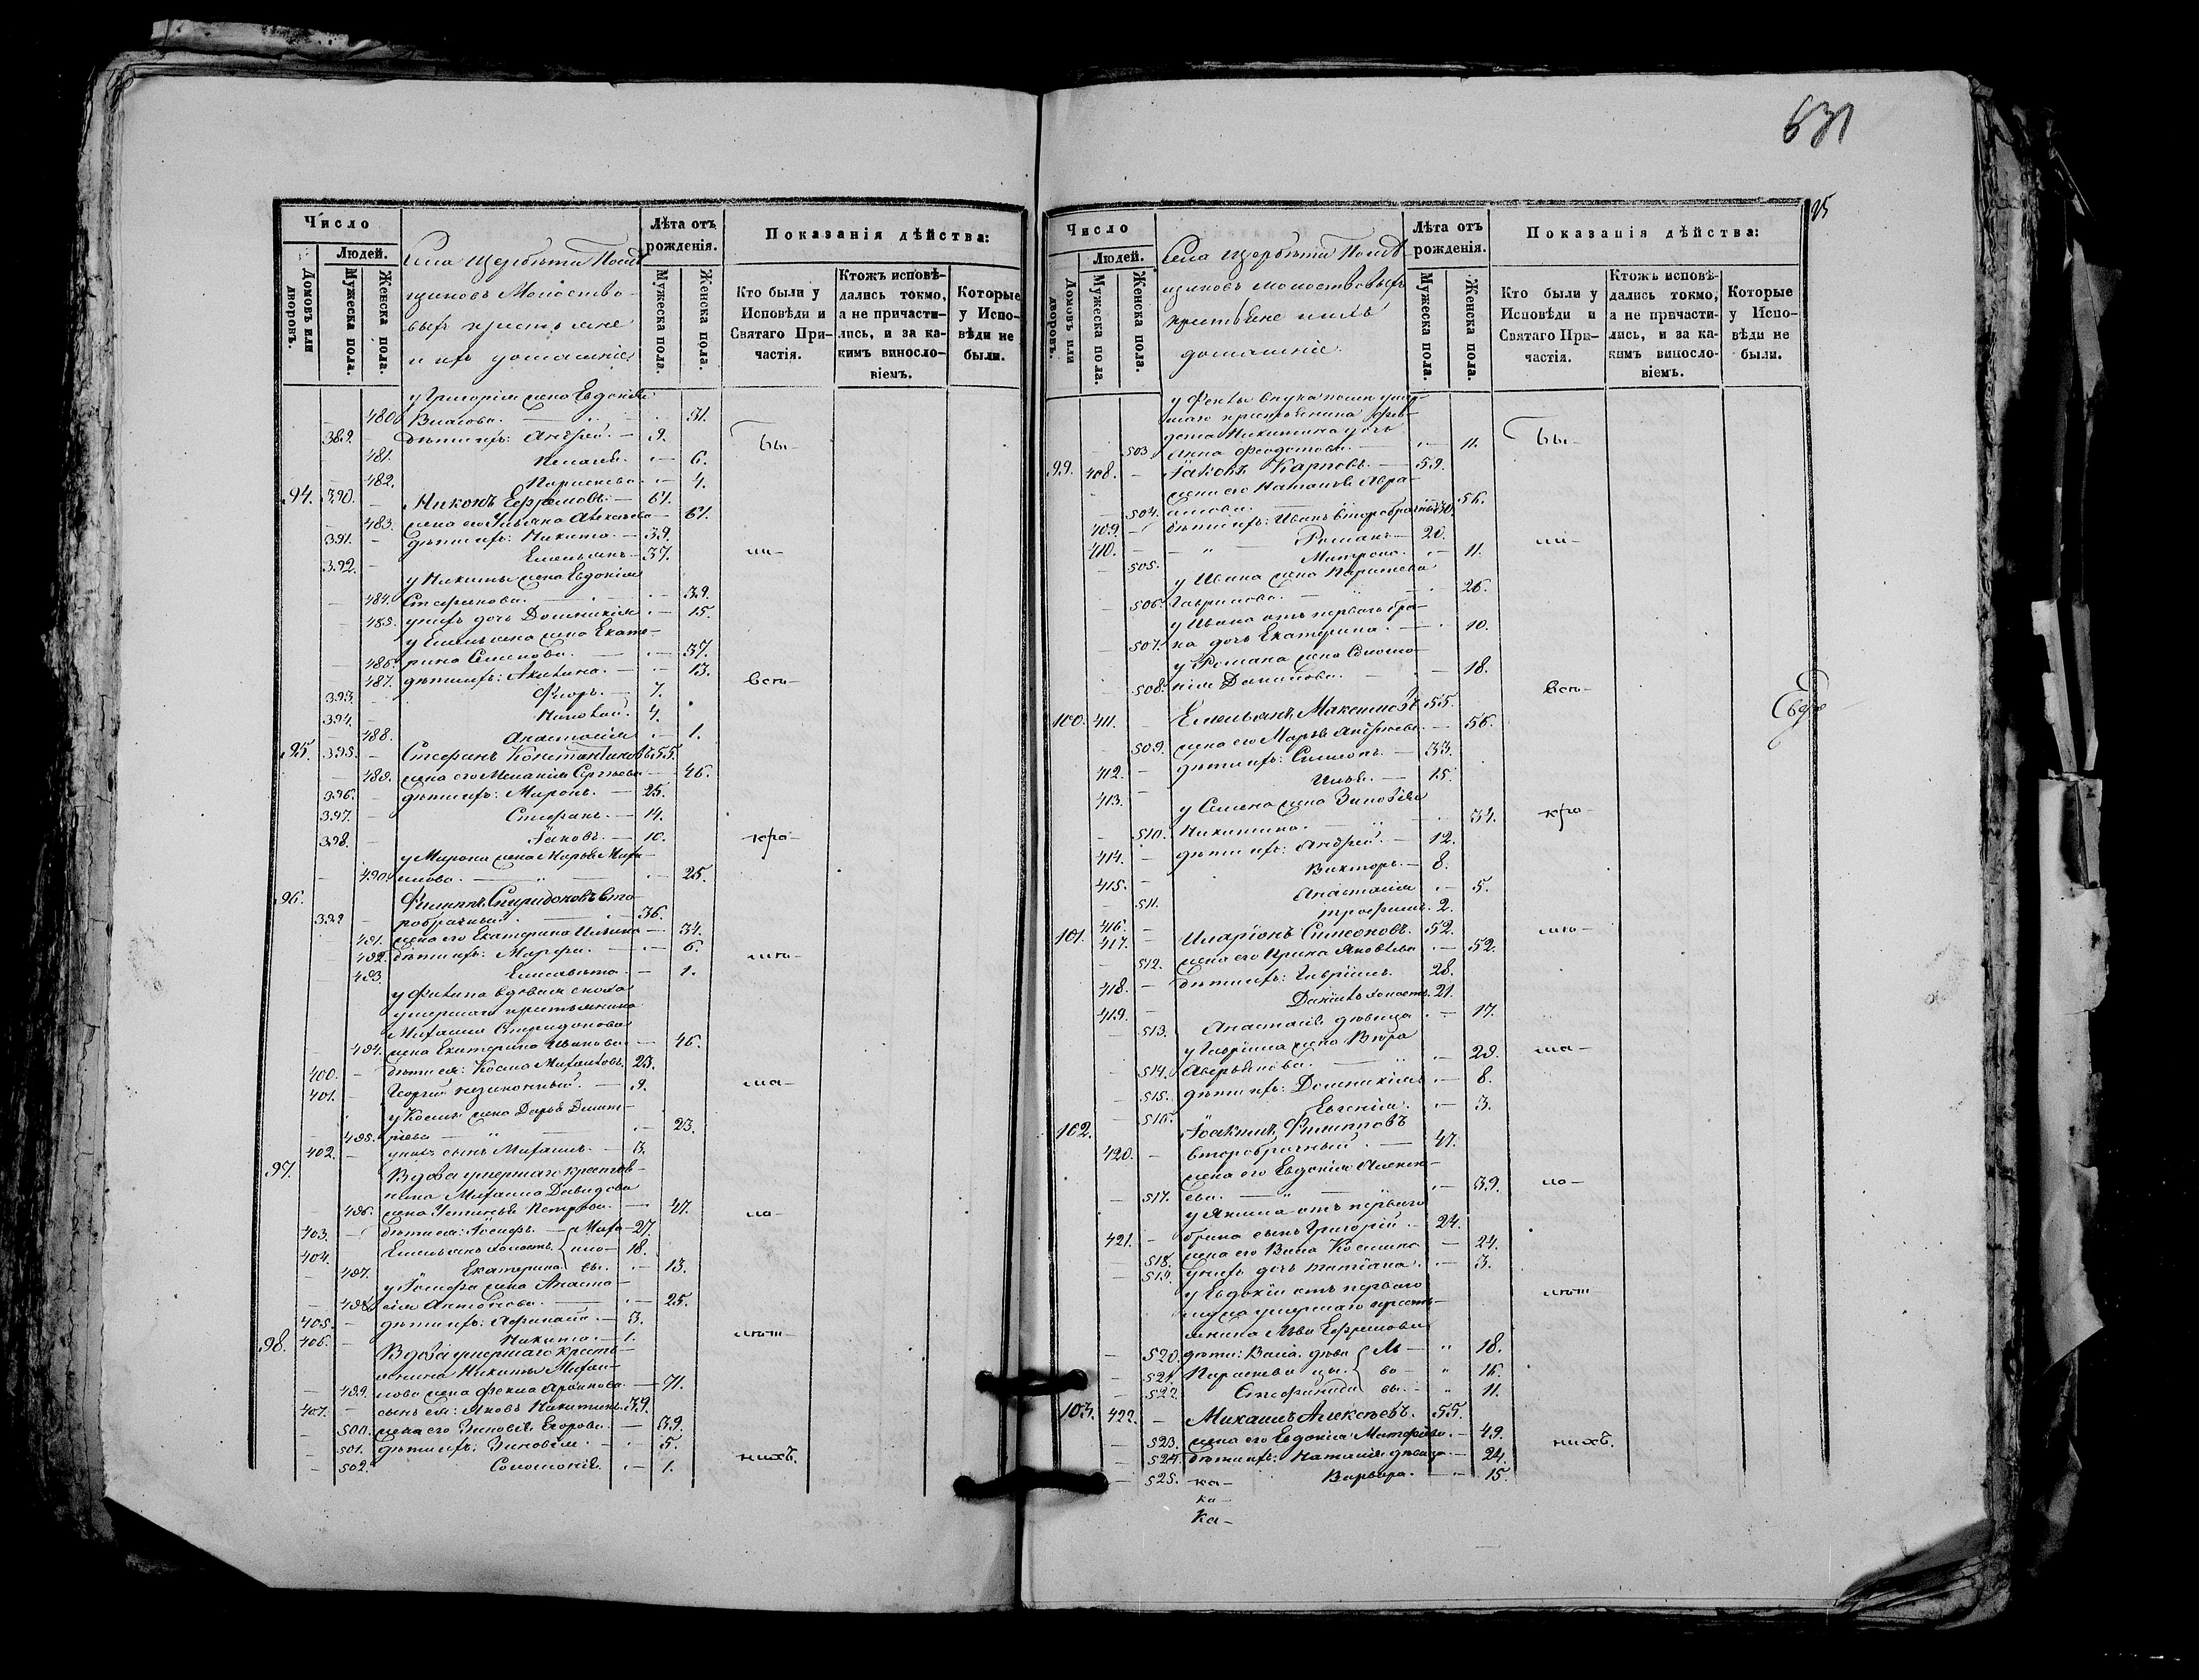 631
25
Число
Людей.
Домовъ или дворовъ.
Мужеска пола.
Женска пола.
Села Щербѣти Помѣ-
щиковъ Молоство-
выхъ крестьяне
и ихъ домашніе
Лѣта отъ рожденія.
Мужеска пола.
Женска пола.
Показанія дѣйства:
Кто были у Исповѣди и Святаго При-частія.
Ктожъ исповѣ-дались токмо, а не причасти-лись, и за ка-кимъ винословіемъ.
Которые у Испо-вѣди не были.
у Григорія жена Евдокія
480 Власова. — 31.
389. — дѣти ихъ: Андрей. — 9. Бы-
481. Пелагея. — 6.
482. Параскева — 4.
94. 390. — Никонъ Ефремовъ. — 61.
483. жена его Ульяна Алексѣева — 61.
391. — дѣти ихъ: Никита. — 39.
392. — Емельянъ — 37. ли-
у Никиты жена Евдокія
484. Стефанова. — 39.
485. у нихъ дочь Домникія — 15.
у Емельяна жена Екате-
486. рина Семенова. — 37.
487. дѣти ихъ: Акилина. — 13. всѣ-
393. — Флоръ. — 7.
394. — Николай. 4.
488. Анастасія — 1.
95. 395. — Стефанъ Константиновъ. 55.
489. жена его Меланія Сергѣева — 46.
396. — дѣти ихъ: Миронъ. — 25.
397. — Стефанъ. — 14.
398. — Іаковъ. — 10. кро-
у Мирона жена Марья Михаи-
490. лова. — 25.
96. Филиппъ Спиридоновъ вто-
399 — робрачный. — 36.
491. жена его Екатерина Ильина — 34.
492. дѣти ихъ: Марфа. — 6. мѣ-
493. Елисавета. — 1.
у Филипа вдовая сноха
умершаго крестьянина
Михаила Спиридонова
494. жена Екатерина Иванова — 46.
400. — дѣти ея: Косма Михаиловъ. 23.
401. — Георгій незаконный. — 9. ма-
у Космы жена Дарья Димит-
495. ріева — 23.
402. — у нихъ сынъ Михаилъ. — 3.
97. Вдова умершаго крестья-
нина Михаила Давидова
496. жена Устинья Петрова. — 47. ло-
403. — дѣти ея: Іосифъ. — Миха- 27.
404. Емельянъ холостъ. ило- 18.
497. Екатерина. вы. — 13.
у Іосифа жена Анаста-
498. сія Антонова. — 25.
405. — дѣти ихъ: Афанасій. — 3.
98. 406. — Никита. — 1. лѣт-
Вдова умершаго кресть-
янина Никиты Михаи-
499. лова жена Фекла — 71.
407. — сынъ ея: Яковъ Никитинъ. 39.
500. жена его Зиновія Егорова. — 39.
501. дѣти ихъ: Зиновія. — 5.
502. Соломонія. — 1. нихъ.
Число
Людей.
Домовъ или дворовъ.
Мужеска пола.
Женска пола.
Села Щербѣти Помѣ-
щиковъ Молоствовыхъ
крестьяне и ихъ
домашніе.
Лѣта отъ рожденія.
Мужеска пола.
Женска пола.
Показанія дѣйства:
Кто были у Исповѣди и Святаго При-частія.
Ктожъ исповѣ-дались токмо, а не причасти-лись, и за ка-кимъ винословіемъ.
Которые у Испо-вѣди не были.
у Феклы внука умер-
шаго крестьянина Фео-
дота Никитина дочь
503. Анна Феодотова. — 11. Бы-
99. 408. — Іаковъ Карповъ. — 59.
жена его Наталья Авра-
504. амова. — 56.
409. — дѣти ихъ: Иванъ второбрачный 30.
410. — Романъ — 20. ли-
505. Матрона. — 11.
у Ивана жена Параскева
506. Гаврилова. — 26.
у Ивана отъ перваго бра-
507. ка дочь Екатерина. — 10.
у Романа жена Соломо-
508. нія Данилова. — 18. всѣ-
100. 411. — Емельянъ Максимовъ 55.
509. жена его Марья Андреева. — 56.
412. — дѣти ихъ: Симеонъ. — 33.
413. Илья. — 15.
у Семена жена Зиновія
510. Никитина. — 34. кро-
414. — дѣти ихъ: Андрей. — 12.
415. — Викторъ. — 8.
511. Анастасія — 5.
416. — Трофимъ. 2.
101. 417. — Иларіонъ Симеоновъ. 52. мѣ-
512. жена его Ирина Яковлева — 52.
418. — дѣти ихъ: Гавріилъ. 28.
419. — Даніилъ холостъ. 21.
513. Анастасія дѣвица — 17.
у Гавріила жена Вѣра
514. Аверьянова. — 29. ма-
515. дѣти ихъ: Домникія — 8.
516. Евгенія. — 3.
102. Іоакимъ Филипповъ
420. — второбрачный. — 47.
жена его Евдокія Алексѣ-
517. ева. — 39. ло-
у Якима отъ перваго
421. — брака сынъ Григорій — 24.
518. жена его Васса Космина — 24.
519. у нихъ дочь Татіана. — 3.
у Евдокіи отъ перваго
мужа умершаго кресть- лѣт
янина Льва Ефремова
520. дѣти: Васса. дѣви Ль — 18.
521. Параскева цы. во — 16.
522. Стефанида вы. — 11.
103. 422. — Михаилъ Алексѣевъ. 55.
523. жена его Евдокія Матфѣева. — 49.
524. дѣти ихъ: Наталія дѣвица — 24. нихъ.
525. Варвара. — 15.
ка-
ка-
Ка-